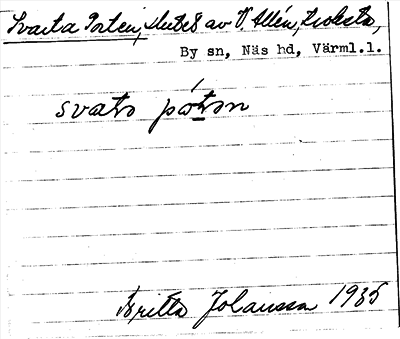 Svarta Porten, av V. Allén,
By sn, Näs hd, Värml.l.
svato påton
Britta Johansson 1935